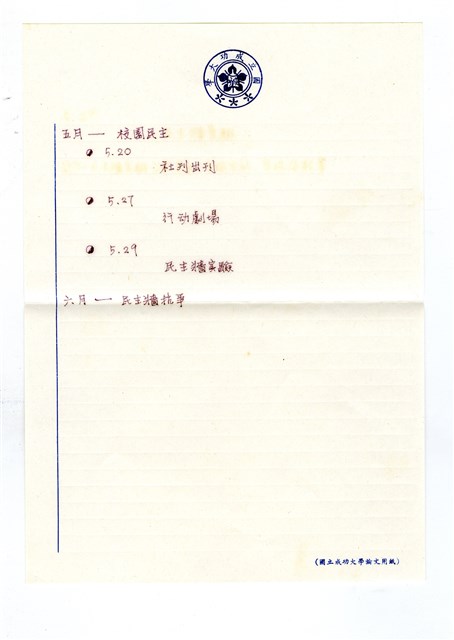 國立成功大學
五月 — 校園民主
5.20
社刊出刊
5.27
行动劇場
5.29
民主牆实驗
六月 — 民主牆抗爭
(國立成功大學論文用紙)